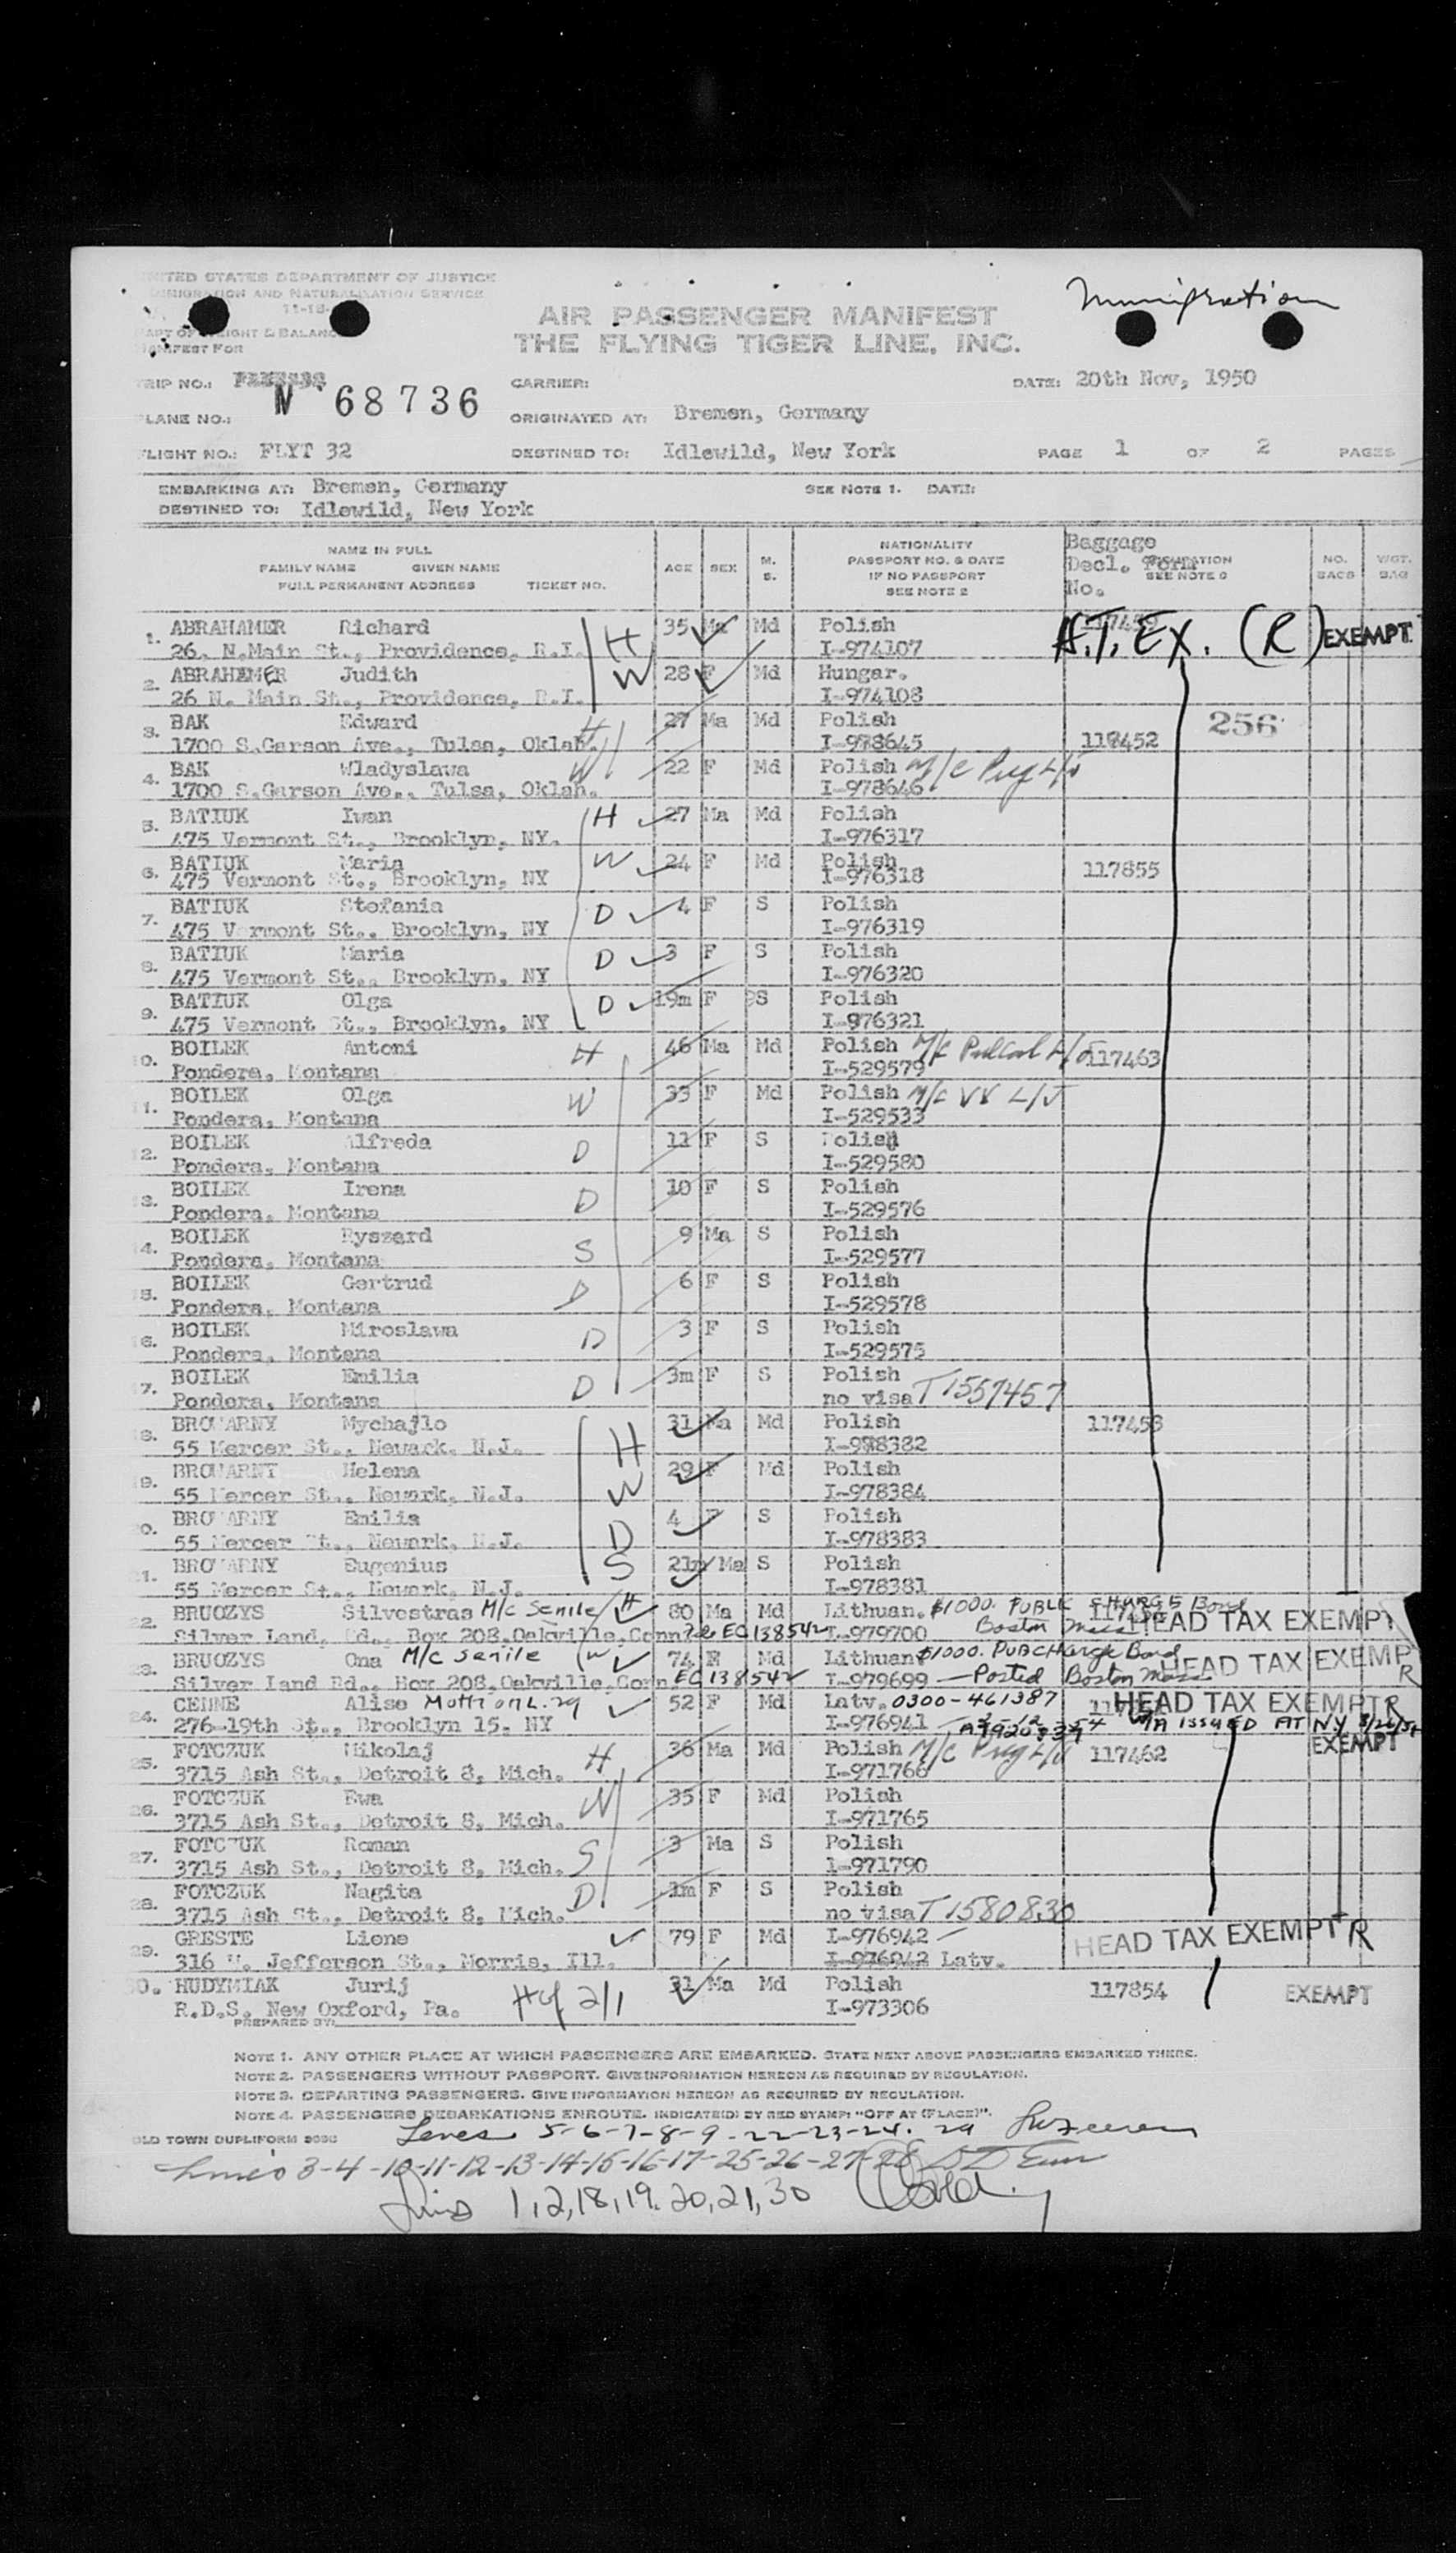 UNITED STATES DEPARTMENT OF JUSTICE
IMMIGRATION AND NATURALIZATION SERVICE
11-18-
PART OF WEIGHT & BALANCE
MANIFEST FOR
Immigration
AIR PASSENGER MANIFEST
THE FLYING TIGER LINE, INC.
TRIP NO.: CARRIER: DATE: 20th Nov, 1950
PLANE NO.: N 68736 ORIGINATED AT: Bremen, Germany
FLIGHT NO.: FLYT 32 DESTINED TO: Idlewild, New York PAGE 1 OF 2 PAGES
EMBARKING AT: Bremen, Germany SEE NOTE 1. DATE:
DESTINED TO: Idlewild, New York
NAME IN FULL
FAMILY NAME GIVEN NAME
FULL PERMANENT ADDRESS TICKET NO.
AGE SEX M. S.
NATIONALITY
PASSPORT NO. & DATE
IF NO PASSPORT
SEE NOTE 2
Baggage
Decl. Form
No.
SEE NOTE 6
NO. BAGS
WGT. BAG
1. ABRAHAMER Richard H 35 Ma Md Polish H.T. EX. (R) EXEMPT
26. N.Main St., Providence, R.I. I-974107
2. ABRAHAMER Judith W 28 F Md Hungar.
26 N. Main St., Providence, R.I. I-974108
3. BAK Edward H 27 Ma Md Polish 256
1700 S.Garson Ave., Tulsa, Oklah. I-978645 117452
4. BAK Wladyslawa W 22 F Md Polish M/C Preg L/J
1700 S.Garson Ave., Tulsa, Oklah. I-978646
5. BATIUK Iwan H 27 Ma Md Polish
475 Vermont St., Brooklyn, NY. I-976317
6. BATIUK Maria W 24 F Md Polish 117855
475 Vermont St., Brooklyn, NY I-976318
7. BATIUK Stefania D 4 F S Polish
475 Vermont St., Brooklyn, NY I-976319
8. BATIUK Maria D 3 F S Polish
475 Vermont St., Brooklyn, NY I-976320
9. BATIUK Olga D 19m F S Polish
475 Vermont St., Brooklyn, NY I-976321
10. BOILEK Antoni H 46 Ma Md Polish M/C L/J 117463
Pondera, Montana I-529579
11. BOILEK Olga W 33 F Md Polish M/C VV L/J
Pondera, Montana I-529533
12. BOILEK Alfreda D 11 F S Polish
Pondera, Montana I-529580
13. BOILEK Irena D 10 F S Polish
Pondera, Montana I-529576
14. BOILEK Ryszard S 9 Ma S Polish
Pondera, Montana I-529577
15. BOILEK Gertrud D 6 F S Polish
Pondera, Montana I-529578
16. BOILEK Miroslawa D 3 F S Polish
Pondera, Montana I-529575
17. BOILEK Emilia D 3m F S Polish
Pondera, Montana no visa T1557457
18. BROWARNY Mychajlo H 31 Ma Md Polish 117453
55 Mercer St., Newark, N.J. I-978382
19. BROWARNY Helena W 29 F Md Polish
55 Mercer St., Newark, N.J. I-978384
20. BROWARNY Emilia D 4 F S Polish
55 Mercer St., Newark, N.J. I-978383
21. BROWARNY Eugenius S 21m Ma S Polish
55 Mercer St., Newark, N.J. I-978381
22. BRUOZYS Silvestras M/C Senile H 80 Ma Md Lithuan. $1000. PUBLIC CHARGE Bond HEAD TAX EXEMPT
Silver Land, Rd., Box 208, Oakville, Conn EC 138542 I-979700 Boston Mass
23. BRUOZYS Ona M/C senile W 74 F Md Lithuan $1000. PUB CHarge Bond HEAD TAX EXEMP R
Silver Land Rd., Box 208, Oakville, Conn EC 138542 I-979699 — Posted Boston Mass
24. CEHNE Alise 52 F Md Latv. 0300-461387 HEAD TAX EXEMPT R
276-19th St., Brooklyn 15. NY I-976941 ISSUED AT NY
25. FOTCZUK Mikolaj H 36 Ma Md Polish M/C Preg L/J 117462 EXEMPT
3715 Ash St., Detroit 8, Mich. I-971766
26. FOTCZUK Ewa W 35 F Md Polish
3715 Ash St., Detroit 8, Mich. I-971765
27. FOTCZUK Roman S 3 Ma S Polish
3715 Ash St., Detroit 8, Mich. I-971790
28. FOTCZUK Nagita D 1m F S Polish
3715 Ash St., Detroit 8, Mich. no visa T1580830
29. GRESTE Liene 79 F Md I-976942 HEAD TAX EXEMPT R
316 W. Jefferson St., Morris, Ill. I-976942 Latv.
30. HUDYMIAK Jurij H of 2/1 31 Ma Md Polish 117854 EXEMPT
R.D.S. New Oxford, Pa. I-973306
PREPARED BY:
NOTE 1. ANY OTHER PLACE AT WHICH PASSENGERS ARE EMBARKED. STATE NEXT ABOVE PASSENGERS EMBARKED THERE.
NOTE 2. PASSENGERS WITHOUT PASSPORT. GIVE INFORMATION HEREON AS REQUIRED BY REGULATION.
NOTE 3. DEPARTING PASSENGERS. GIVE INFORMATION HEREON AS REQUIRED BY REGULATION.
NOTE 4. PASSENGERS DEBARKATIONS ENROUTE. INDICATE(D) BY RED STAMP: "OFF AT (PLACE)".
OLD TOWN DUPLIFORM
Lines 5-6-7-8-9-22-23-24. 29
Lines 3-4-10-11-12-13-14-15-16-17-25-26-27-28
Lines 1,2,18,19,20,21,30